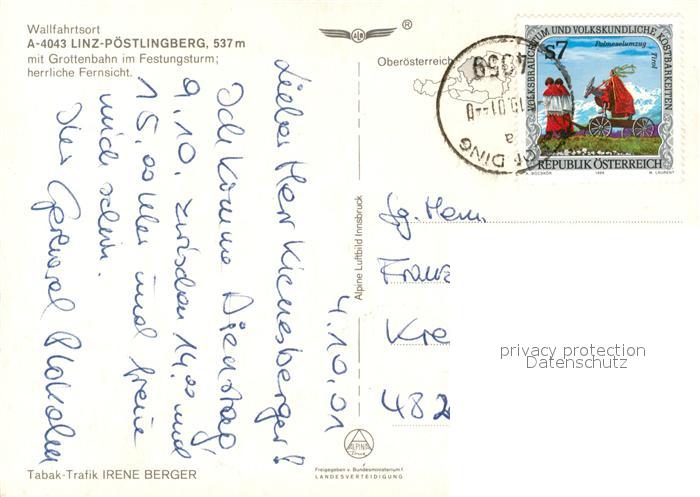 Wallfahrtsort
A-4043 LINZ-PÖSTLINGBERG, 537 m
mit Grottenbahn im Festungsturm;
herrliche Fernsicht.
ALB
®
Oberösterreich
VOLKSBRAUCHTUM UND VOLKSKUNDLICHE KOSTBARKEITEN
S7
Palmeselumzug
Tirol
REPUBLIK ÖSTERREICH
4.10.01
Lieber Herr Kienesberger!
Ich komme Dienstag
9.10. zwischen 14,00 und
15,00 Uhr und freue
mich schon.
Ihr Gerhard
Alpine Luftbild Innsbruck
Sg. Herrn
Franz
Kre
482
privacy protection
Datenschutz
ALPINA
Freigegeben v. Bundesministerium f.
LANDESVERTEIDIGUNG
Tabak-Trafik IRENE BERGER